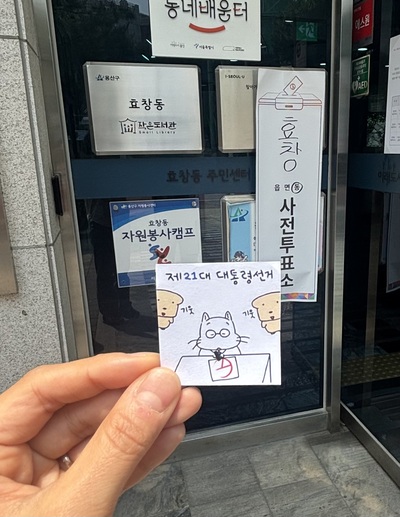 동네배움터
용산구
효창동
작은도서관
Small Library
I·SEOUL·U
효창동 주민센터
효창
읍면동
사전투표소
효창동
자원봉사캠프
제21대 대통령선거
기웃
기웃
AED